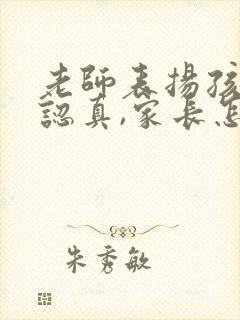 老師表揚孩
認真,家長怎
朱秀敏